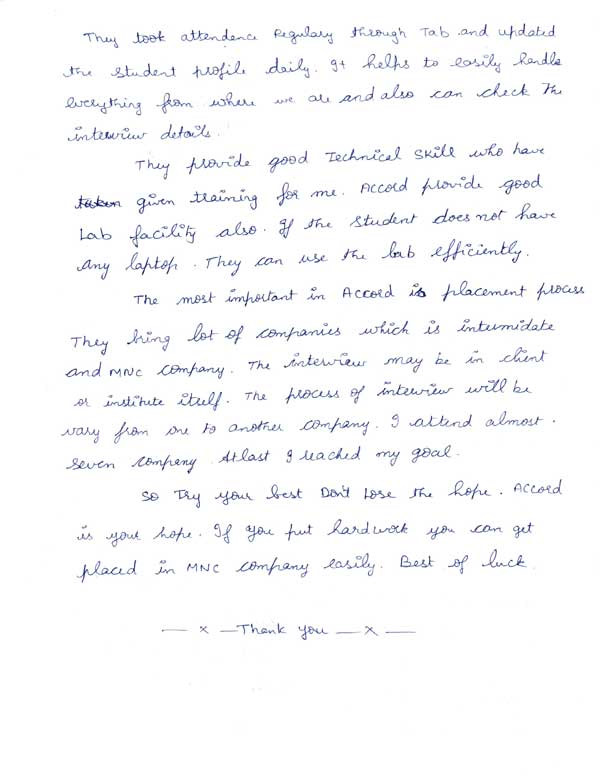 They took attendence Regulary through Tab and updated
the student profile daily. It helps to easily handle
everything from where we are and also can check the
interview details.
They provide good Technical Skill who have
taken given training for me. Accord provide good
Lab facility also. If the student does not have
any laptop. They can use the lab efficiently.
The most important in Accord is placement process
They bring lot of companies which is intermidate
and MNC company. The interview may be in client
or institute itself. The process of interview will be
vary from one to another company. I attend almost.
seven company. At last I reached my goal.
So Try your best Don't Lose the hope. Accord
is your hope. If you put hardwork you can get
placed in MNC company easily. Best of luck.
— x — Thank you — x —